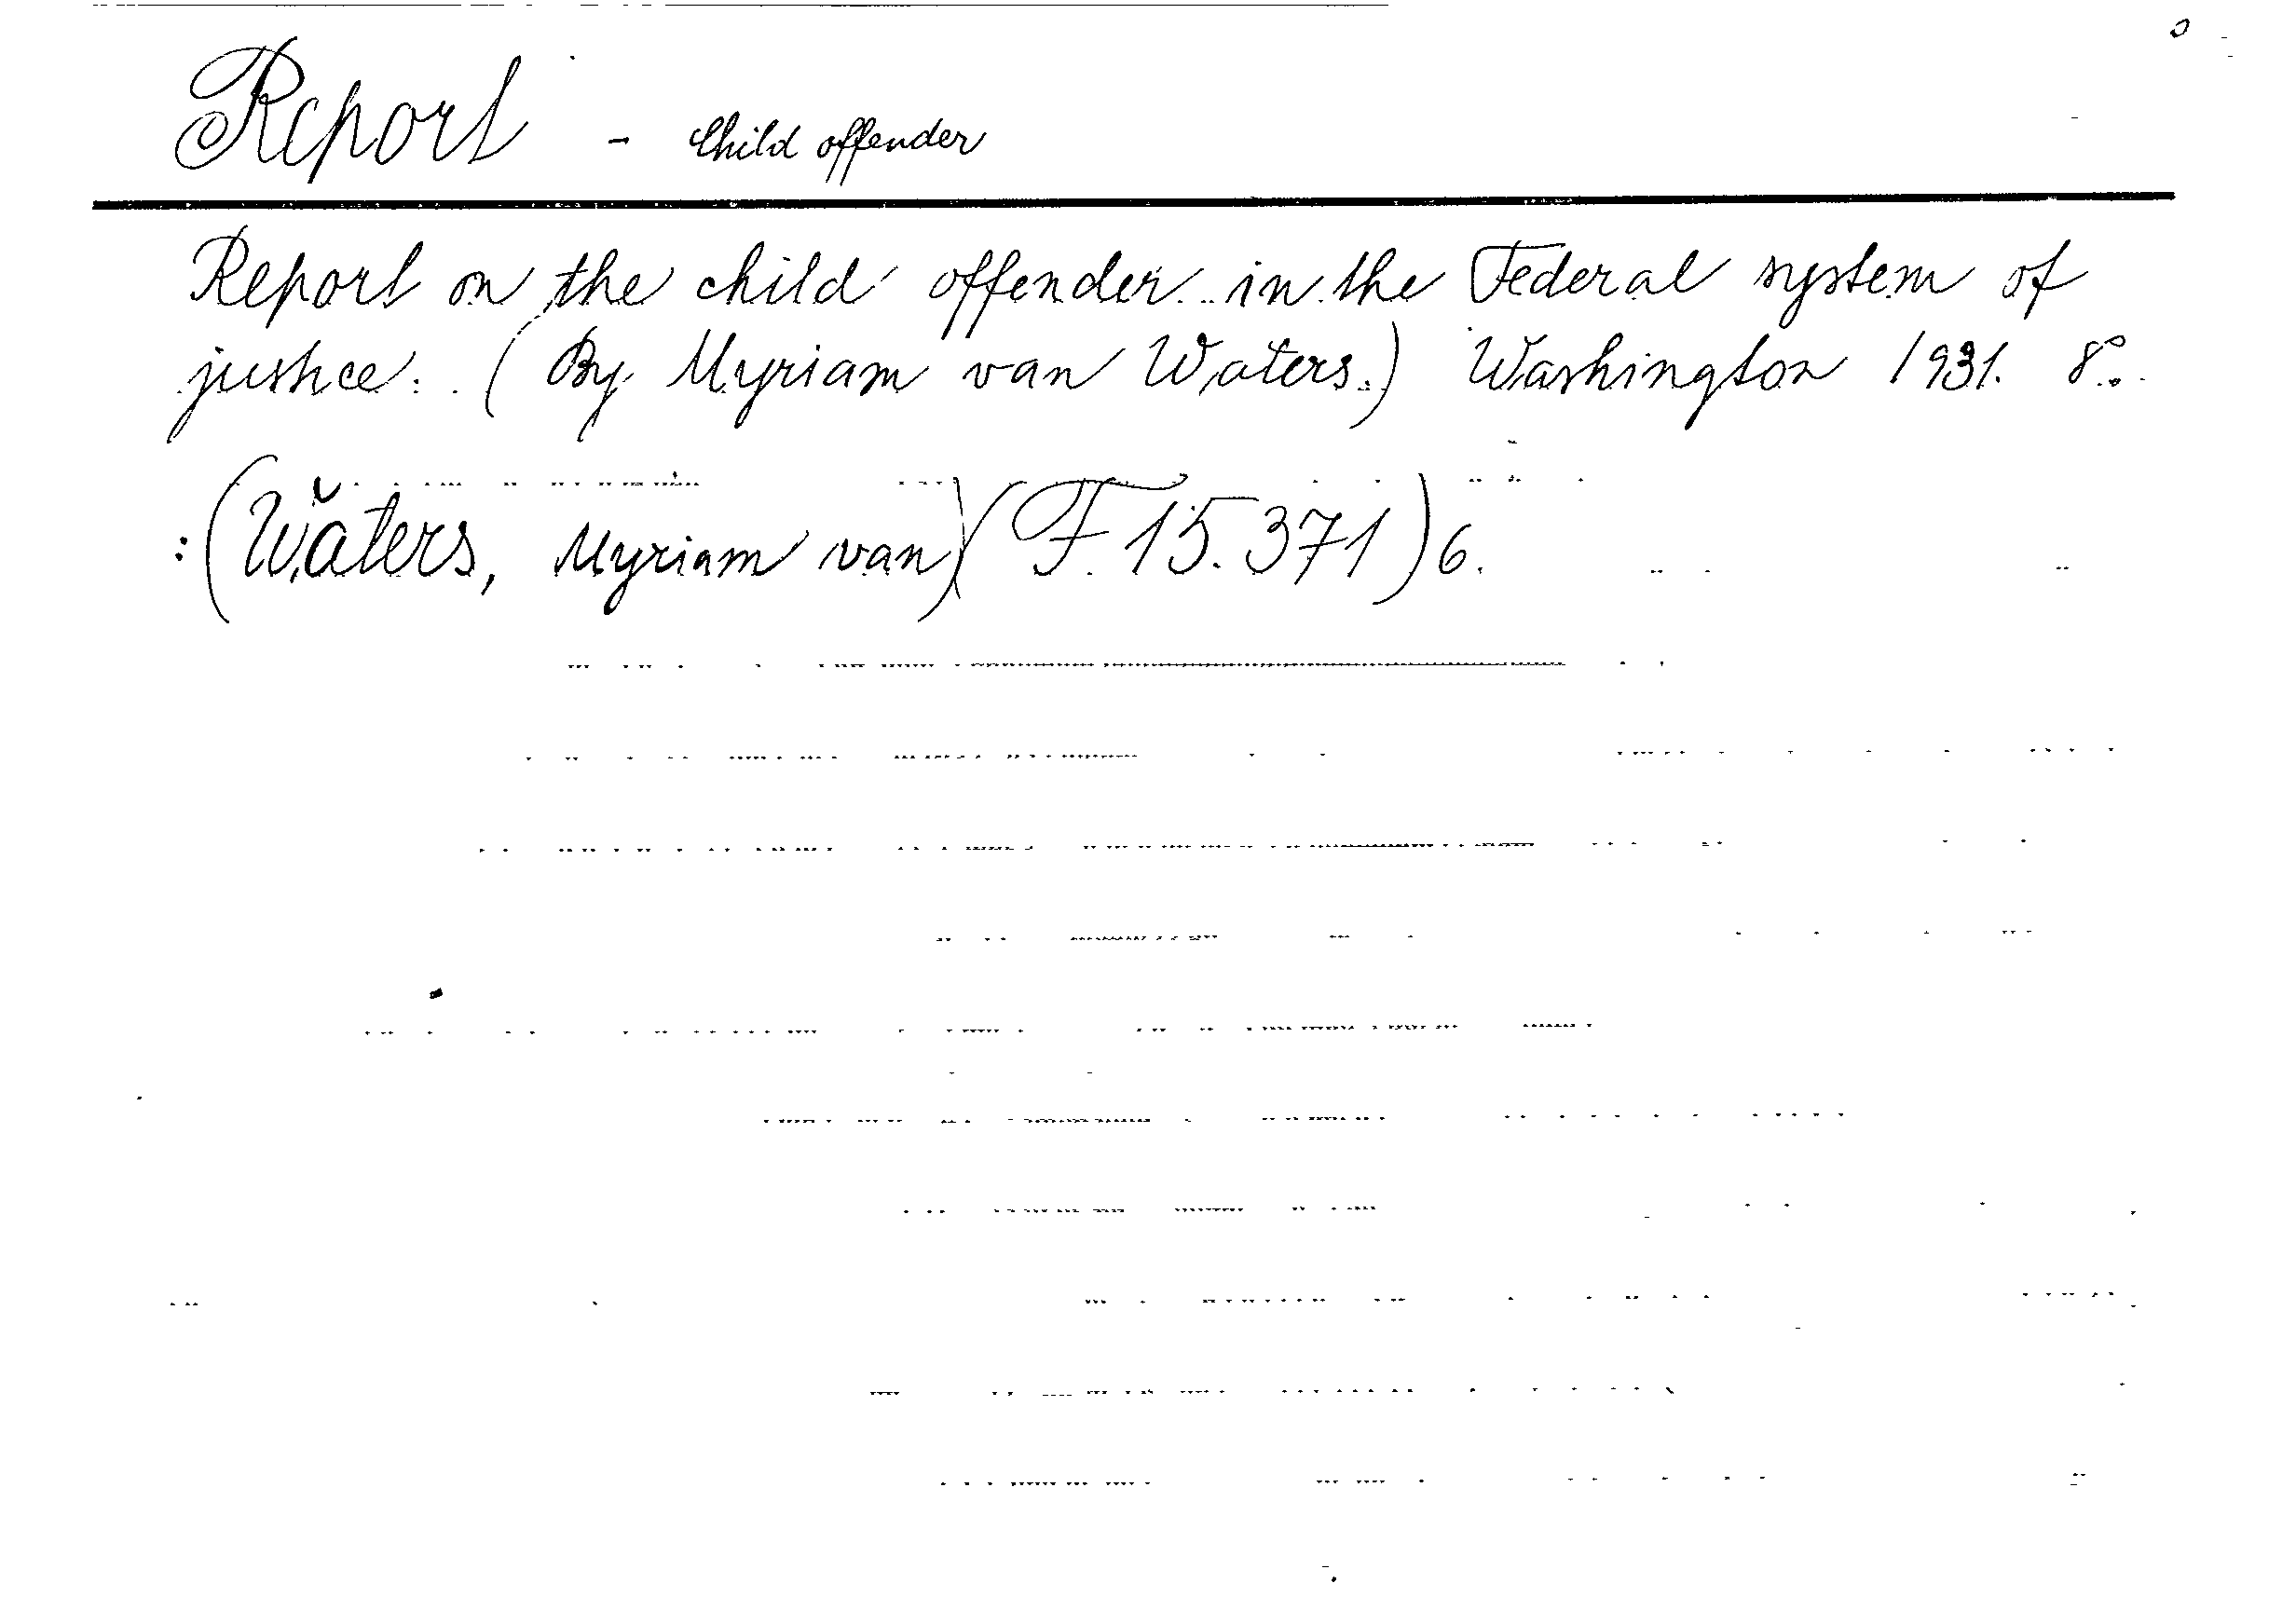 Report - Child offender
Report on the child offender in the Federal system of
justice. (By Myriam van Waters.) Washington 1931. 8°.
:(Waters, Myriam van)(F 15.371)6.